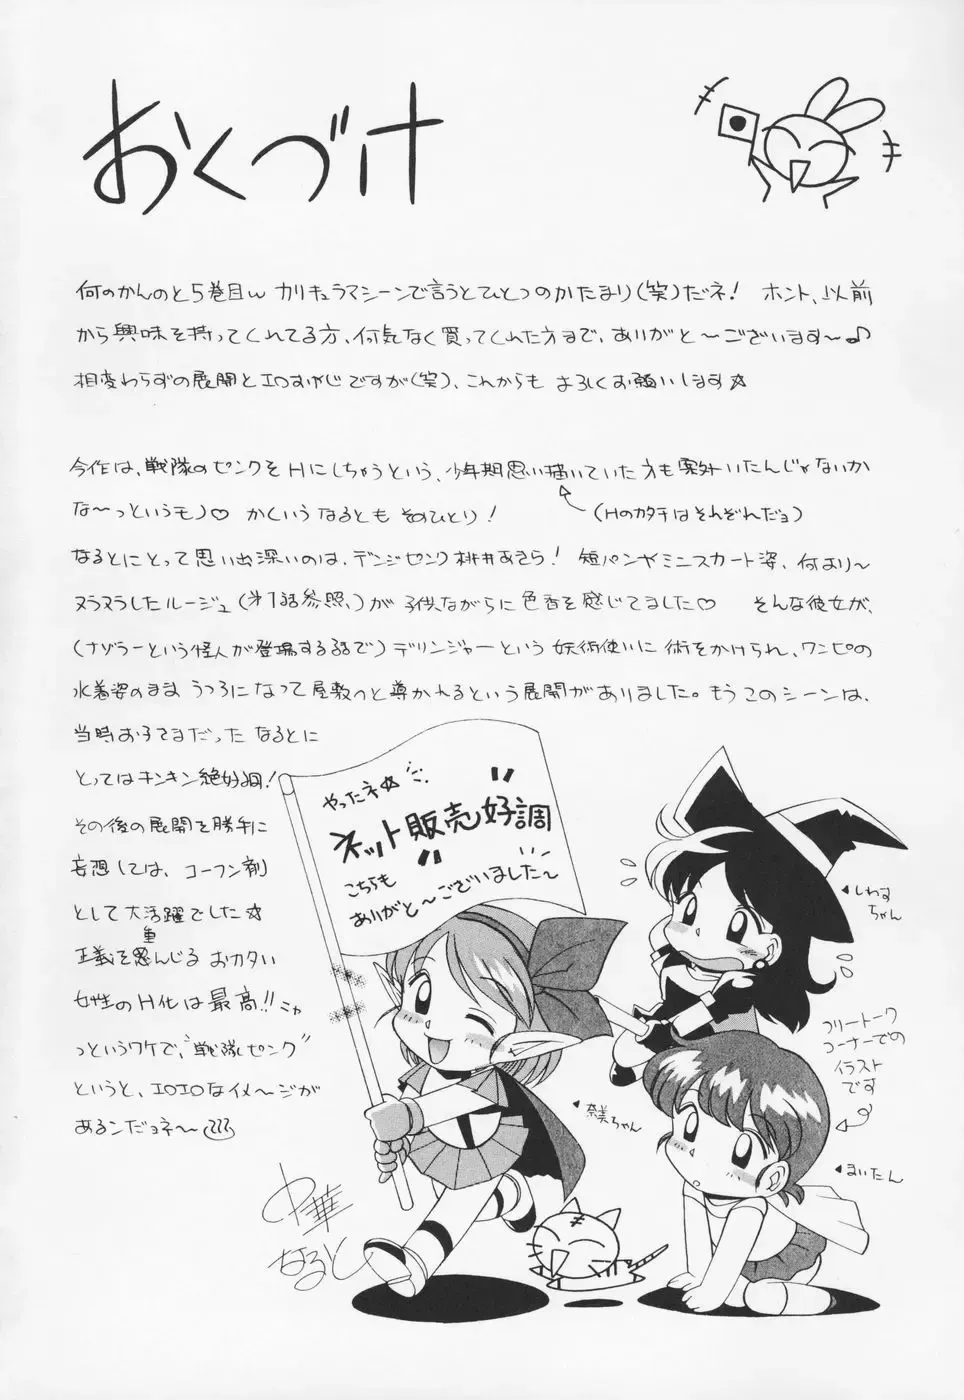 おくづけ
何のかんのと5巻目w カリキュラマシーンで言うとひとつのかたまり(笑)だネ! ホント、以前
から興味を持ってくれてる方、何気なく買ってくれた方まで、ありがと〜ございます〜♪
相変わらずの展開とエロおやじですが(笑)、これからも よろしくお願いします☆
今作は、戦隊のピンクをHにしちゃうという、少年期思い描いていた方も案外いたんじゃないか
な〜っというモノ♡ かくいうなるともそのひとり!
(Hのカタチはそれぞれだョ)
なるとにとって思い出深いのは、デンジピンク桃井あきら! 短パンやミニスカート姿、何より〜
ヌラヌラしたルージュ(第1話参照、)が子供ながらに色香を感じてました♡ そんな彼女が、
(ナゾラーという怪人が登場する話で)デリンジャーという妖術使いに術をかけられ、ワンピの
水着姿のまま うつろになって屋敷へと導かれるという展開がありました。もうこのシーンは、
当時お子さまだった なるとに
とってはキンキン絶好調!
その後の展開を勝手に
妄想しては、コーフン剤
として大活躍でした☆
正義を重んじる おカタい
女性のH化は最高!!ニャ
っというワケで、"戦隊ピンク"
というと、エロエロなイメ〜ジが
あるンだョネ〜
やったネ☆
"ネット販売好調"
こちらも
ありがと〜ございました〜
しわす
ちゃん
フリートーク
コーナーでの
イラスト
です
奈美ちゃん
まいたん
中華
なると